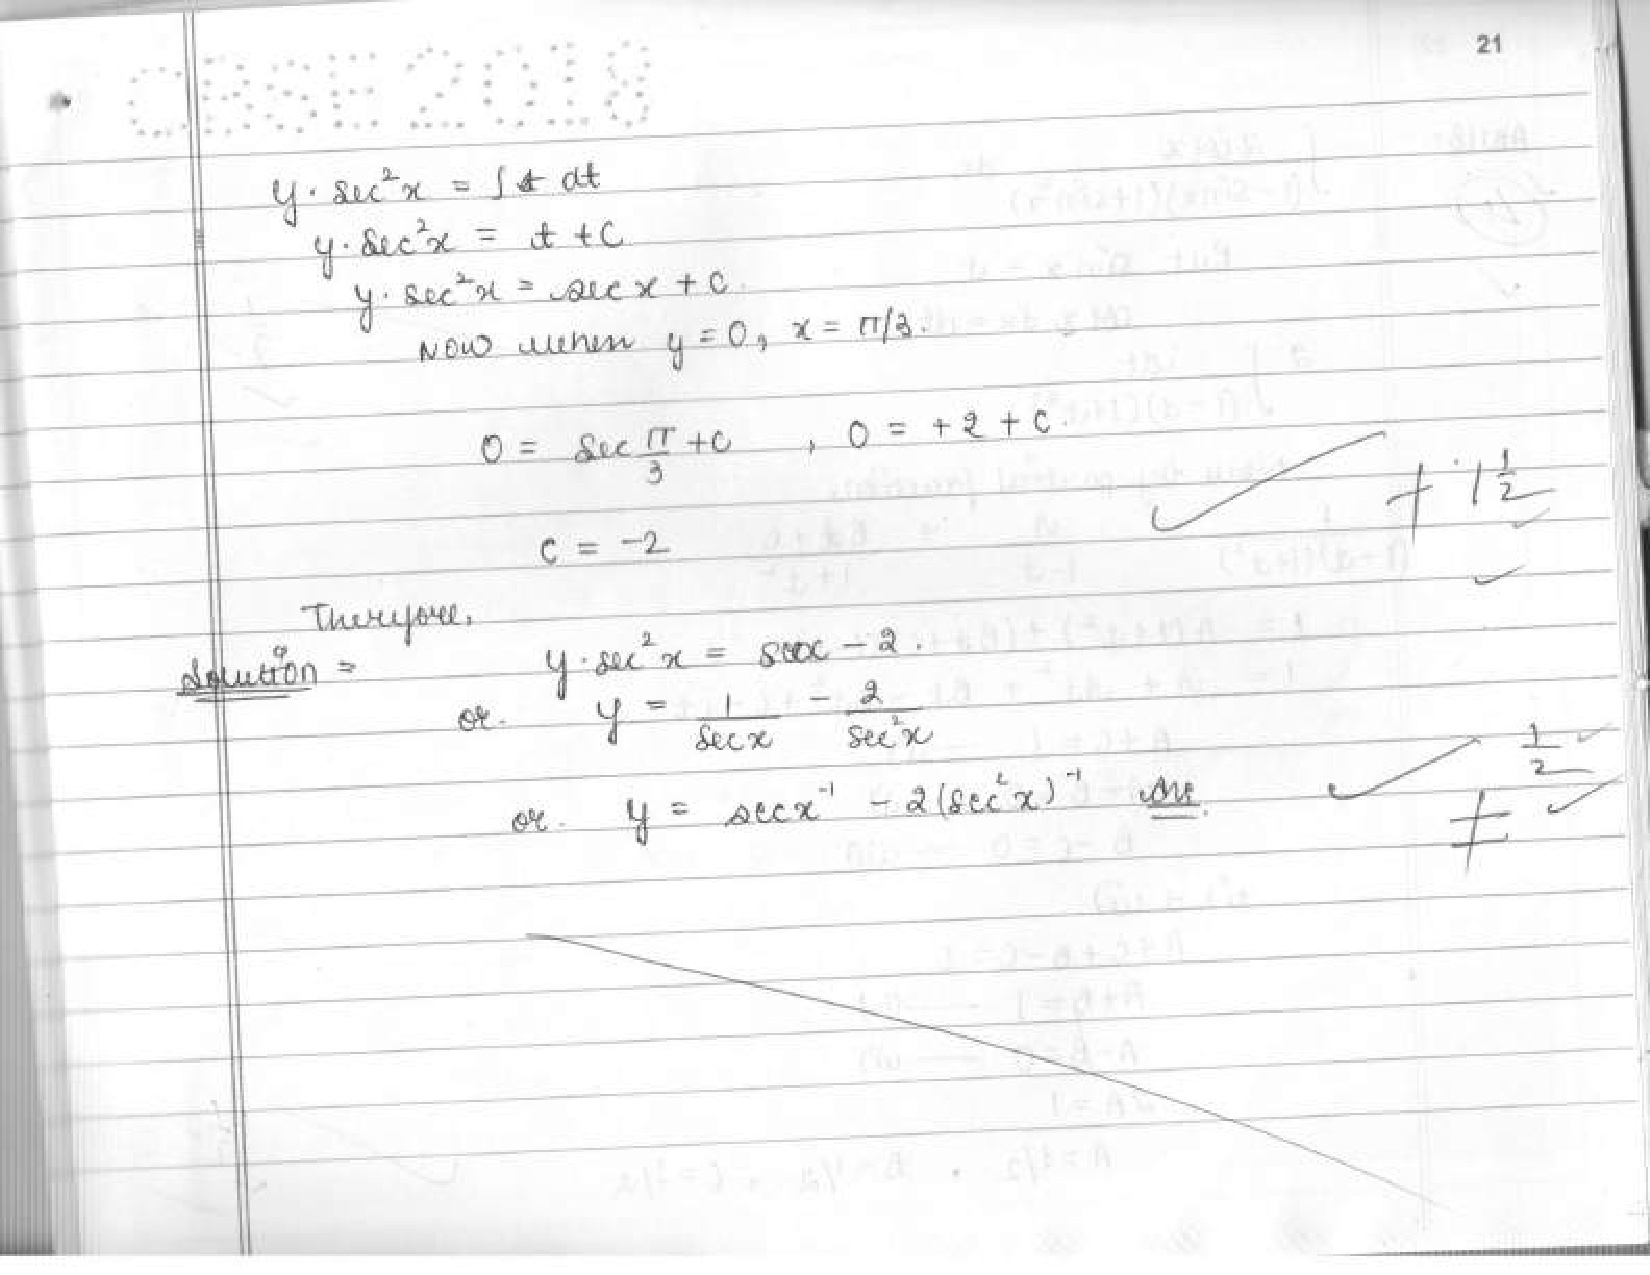 21
CBSE 2018
y · sec²x = ∫ dt
y · sec²x = t + c
y · sec²x = sec x + c.
Now when y = 0, x = π/3.
0 = sec π/3 + c , 0 = +2 + c.
+ 1 1/2
c = -2
Therefore,
Solution =
y · sec²x = secx - 2.
or. y = 1/sec x - 2/sec²x
1/2
or. y = sec x⁻¹ - 2(sec²x)⁻¹ Ans.